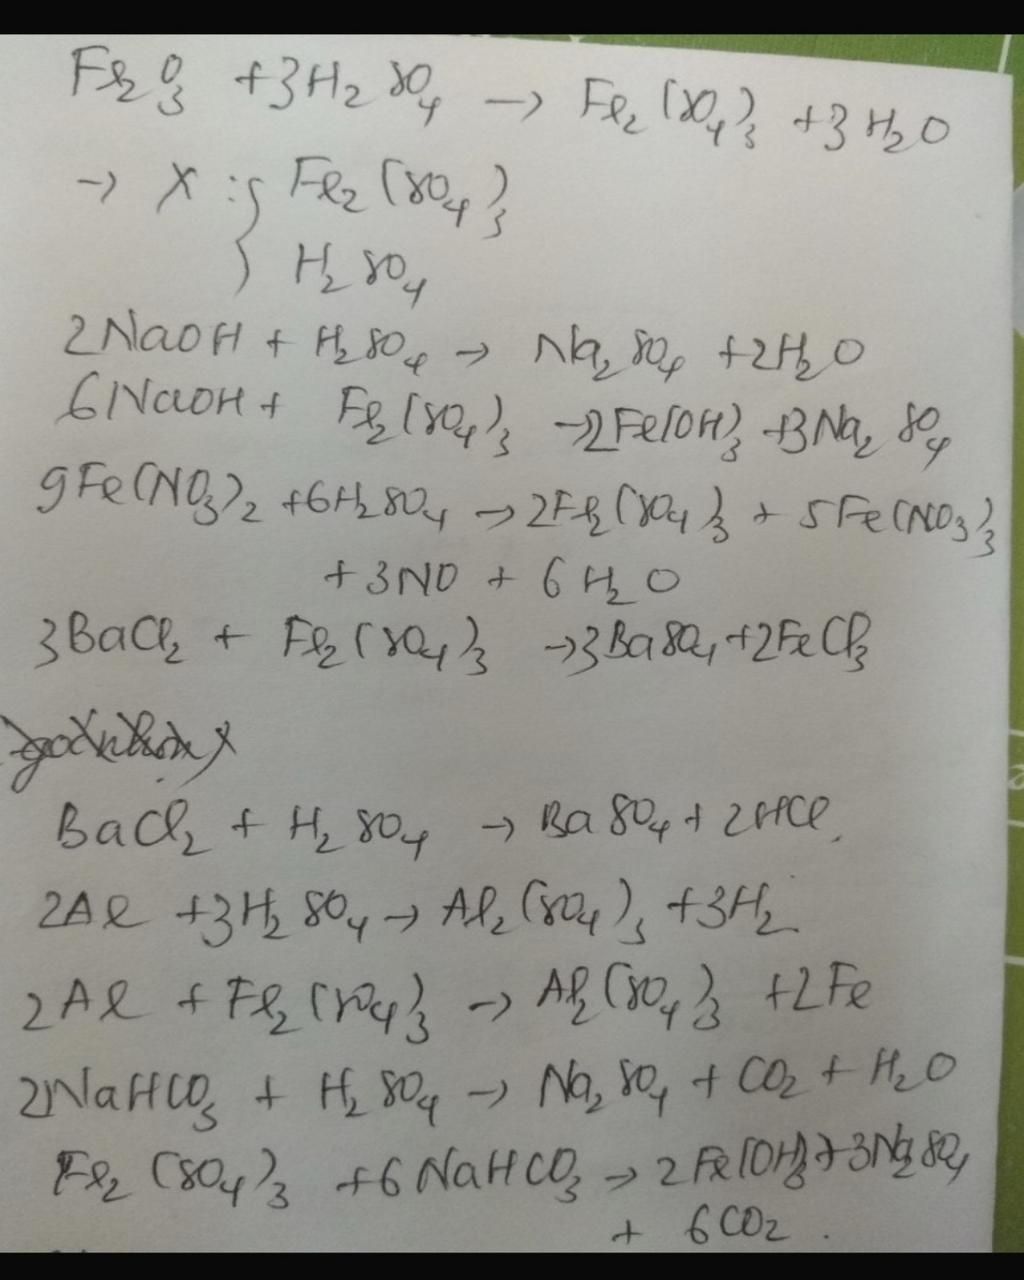 Fe2O3 + 3H2SO4 → Fe2(SO4)3 + 3H2O
→ X : { Fe2(SO4)3
H2SO4
2NaOH + H2SO4 → Na2SO4 + 2H2O
6NaOH + Fe2(SO4)3 → 2Fe(OH)3 + 3Na2SO4
9Fe(NO3)2 + 6H2SO4 → 2Fe2(SO4)3 + 5Fe(NO3)3
+ 3NO + 6H2O
3BaCl2 + Fe2(SO4)3 → 3BaSO4 + 2FeCl3
BaCl2 + H2SO4 → BaSO4 + 2HCl.
2Al + 3H2SO4 → Al2(SO4)3 + 3H2
2Al + Fe2(SO4)3 → Al2(SO4)3 + 2Fe
2NaHCO3 + H2SO4 → Na2SO4 + CO2 + H2O
Fe2(SO4)3 + 6NaHCO3 → 2Fe(OH)3 + 3Na2SO4
+ 6CO2.